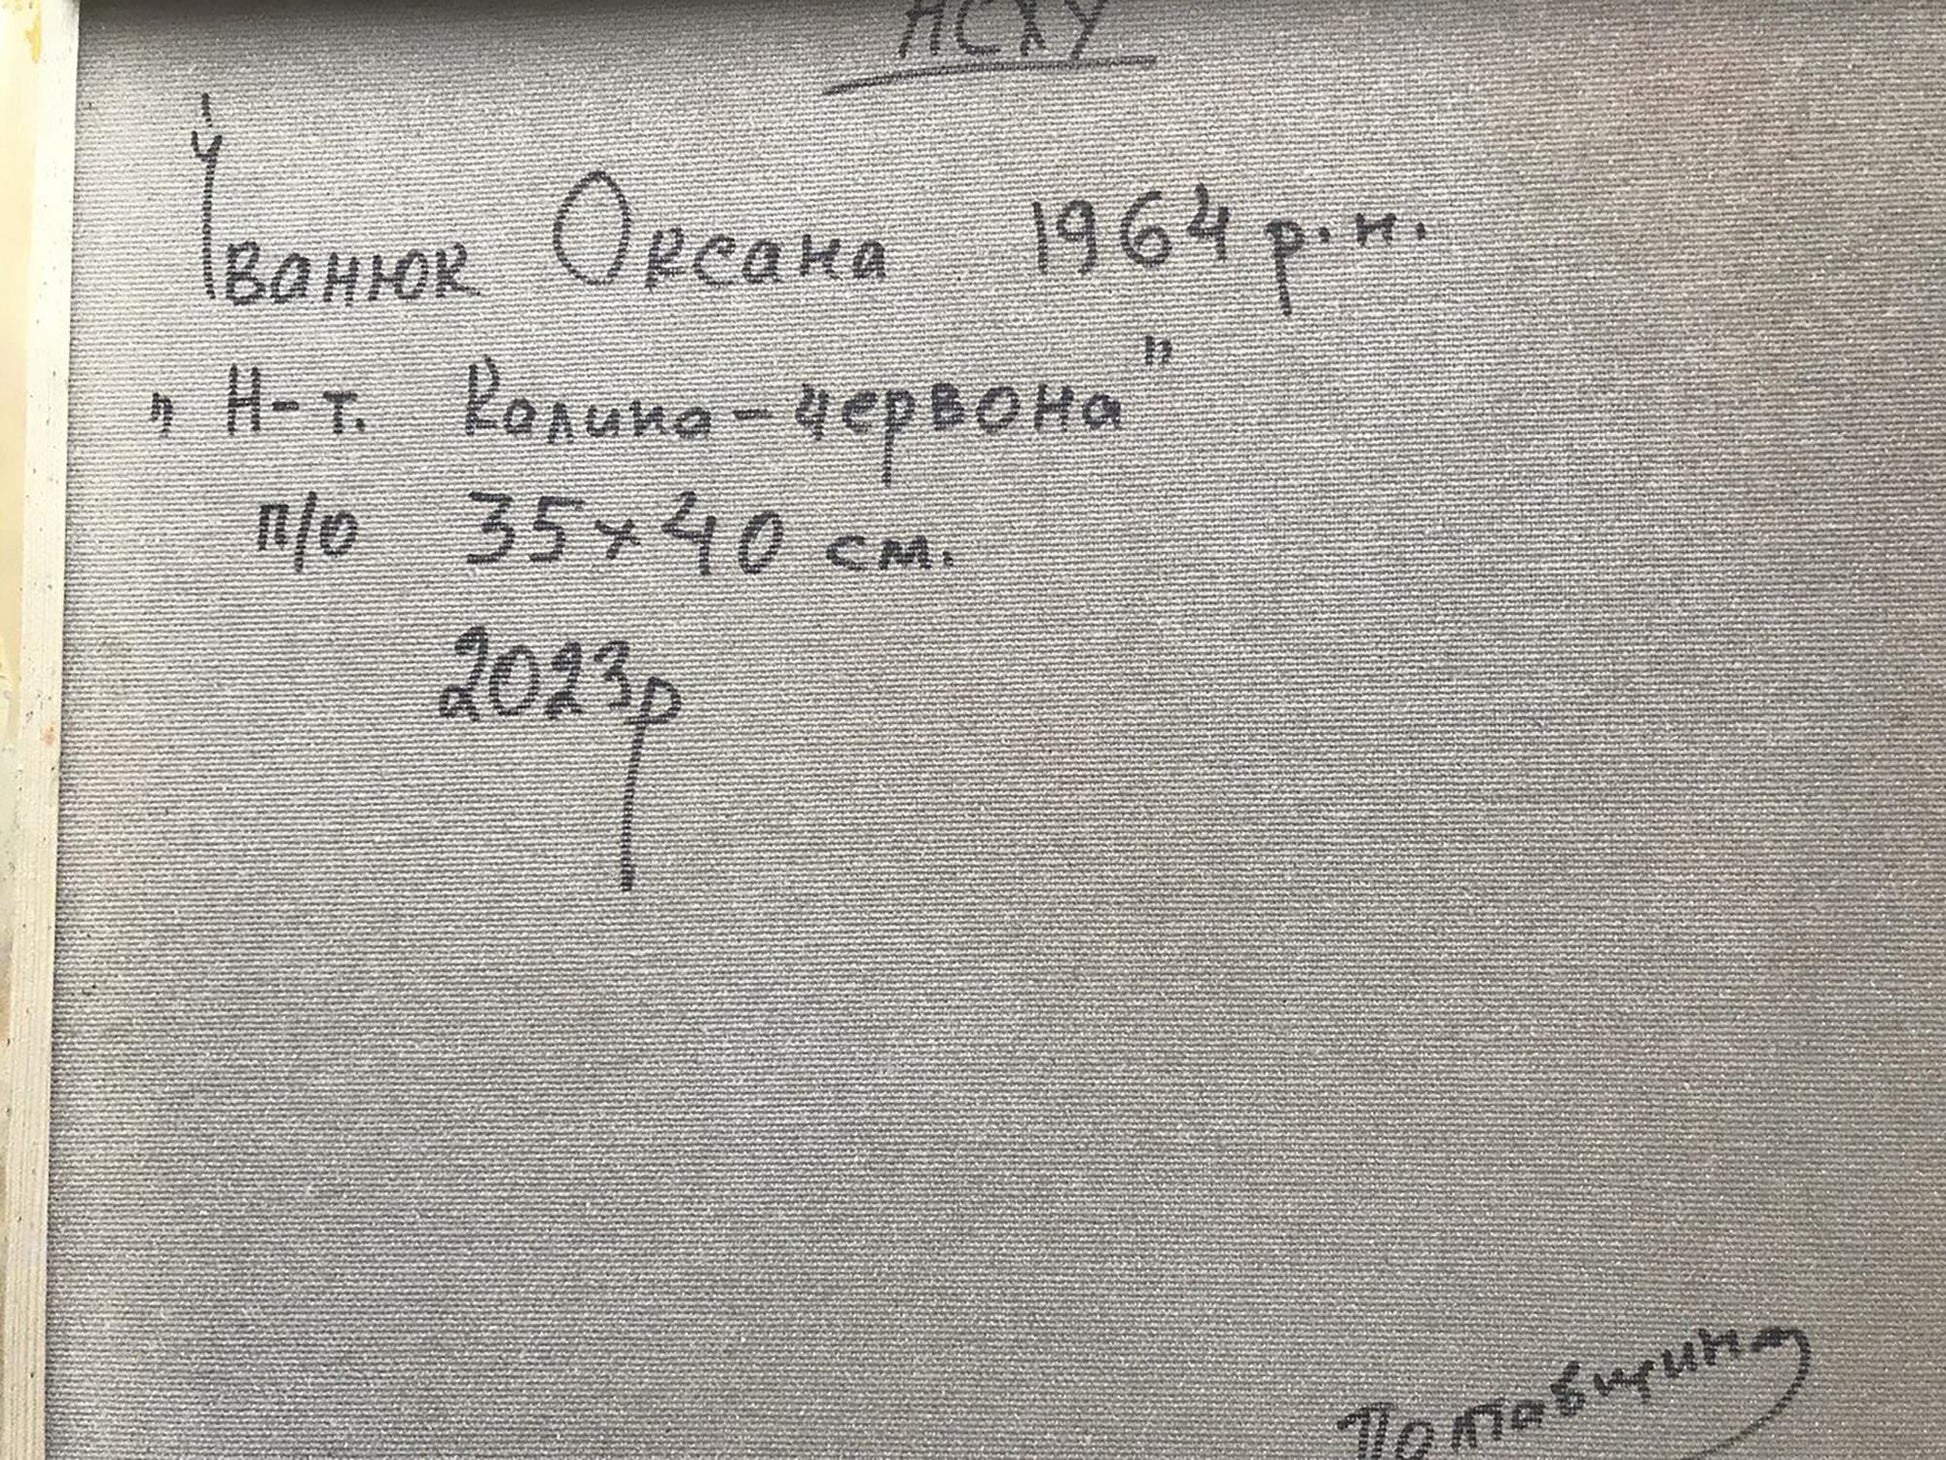 НСХУ
Іванюк Оксана 1964 р.н.
" Н-т. Калина-червона"
п/о 35x40 см.
2023р
Полтавщина